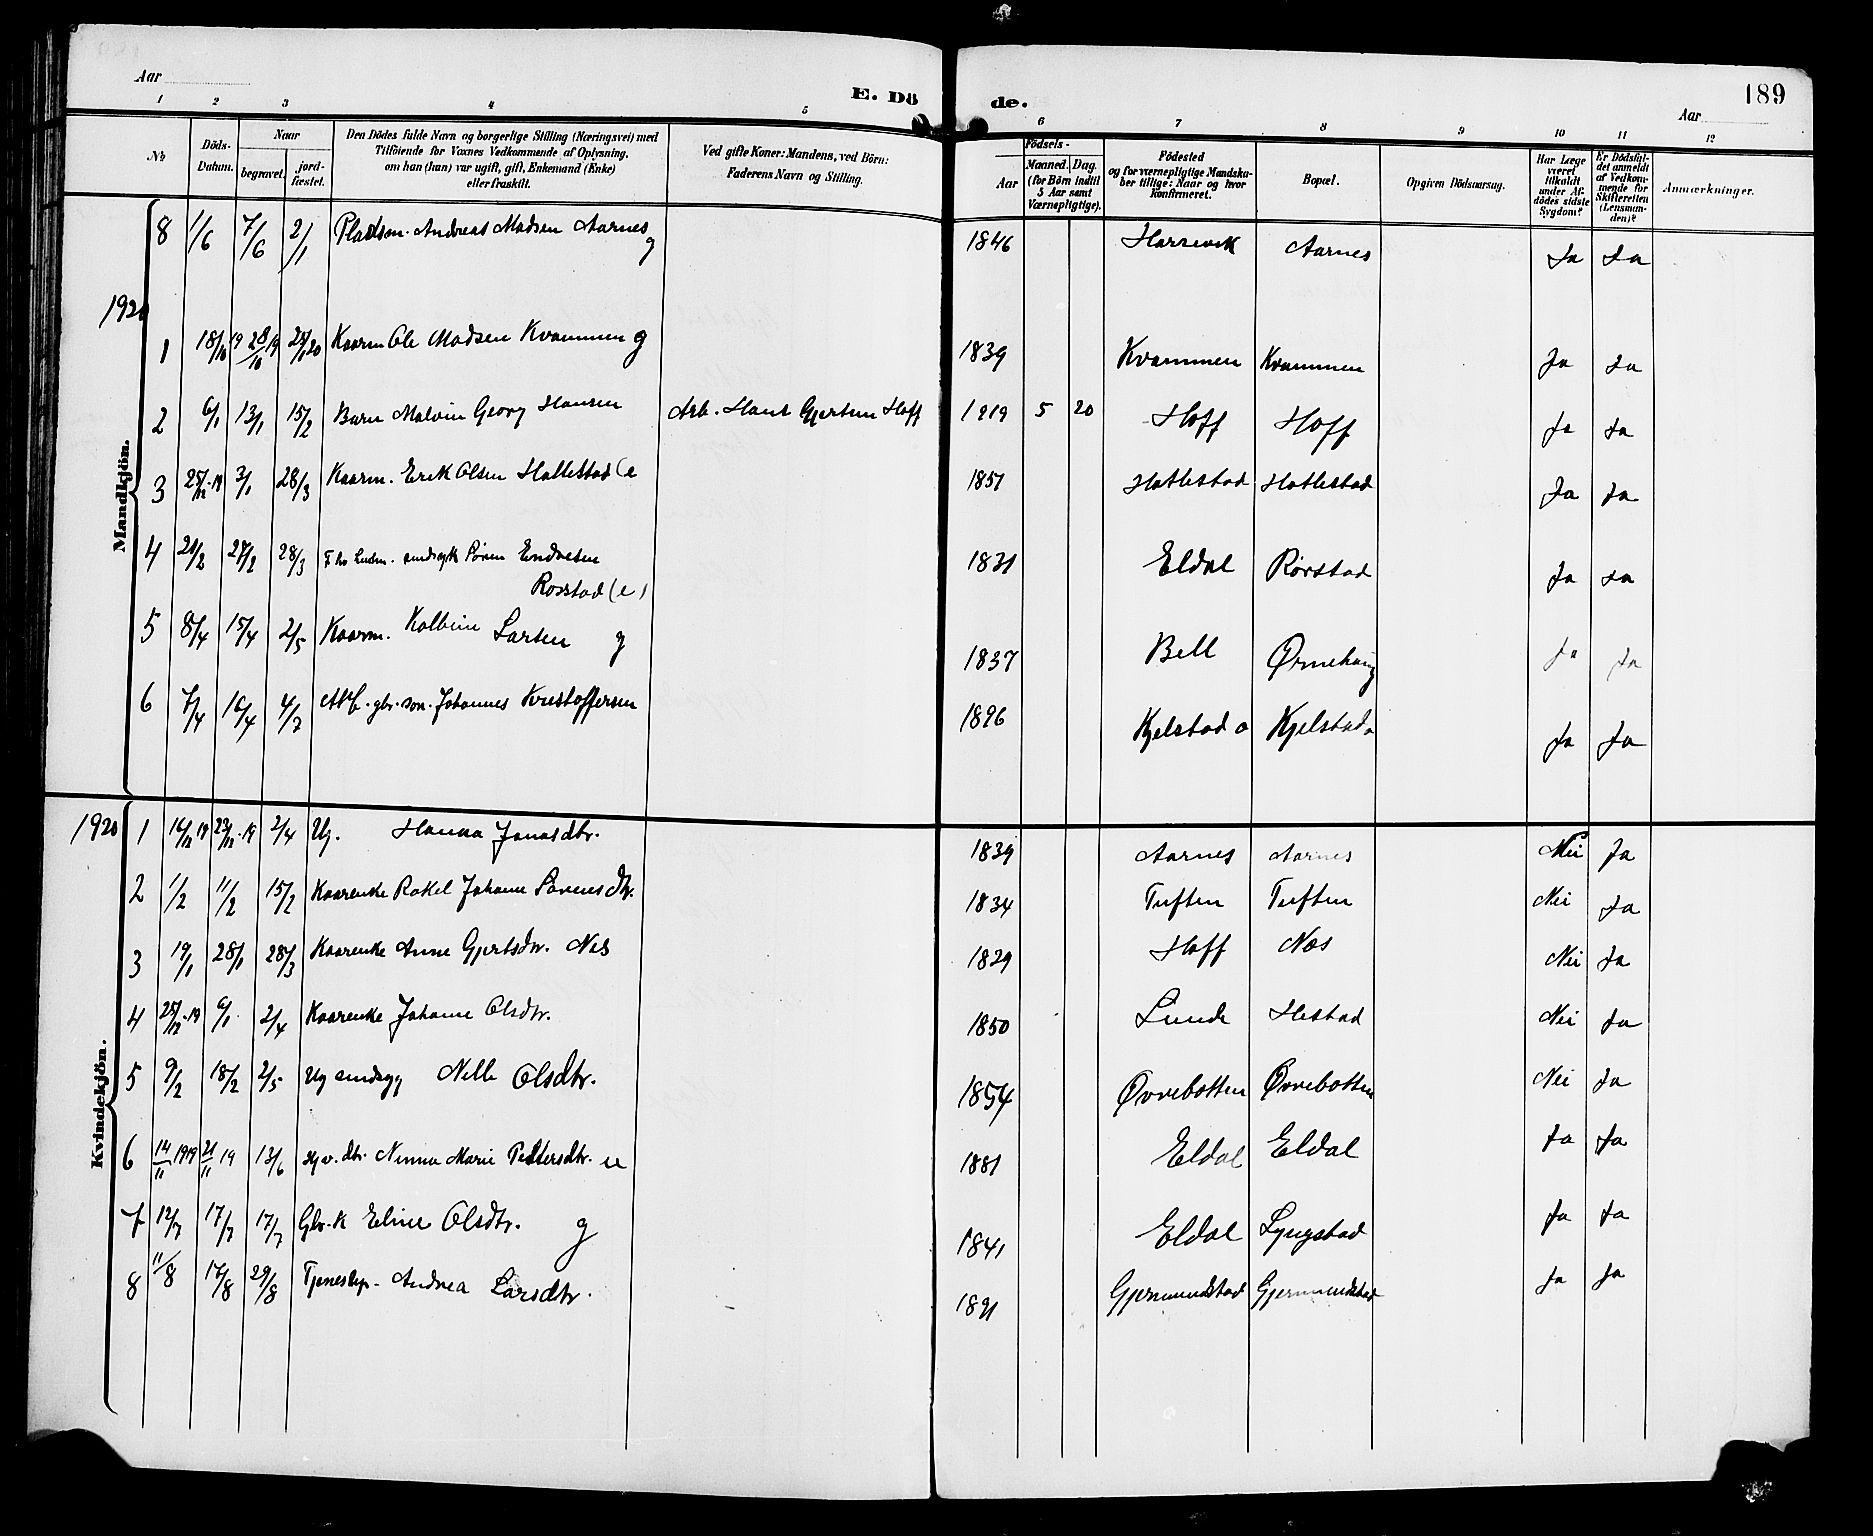 Aar
E. Dö
de.
189
Aar
1 2 3 4 5 6 7 8 9 10 11 12
No
Döds-
Datum.
Naar
begravet.
jord-
fæstet.
Den Dödes fulde Navn og borgerlige Stilling (Næringsvei) med
Tilföiende for Voxnes Vedkommende af Oplysning,
om han (hun) var ugift, gift, Enkemand (Enke)
eller fraskilt.
Ved gifte Koner: Mandens, ved Börn:
Faderens Navn og Stilling.
Födsels-
Aar
Maaned. Dag.
(for Börn indtil
5 Aar samt
Værnepligtige).
Födested
og for værnepligtige Mandska-
ber tillige: Naar og hvor
konfirmeret.
Bopæl.
Opgiven Dödsaarsag.
Har Læge
været
tilkaldt
under Af-
dödes sidste
Sygdom?
Er Dödsfal-
det anmeldt
af Vedkom-
mende for
Skifteretten
(Lensman-
den)?
Anmærkninger.
Mandkjön.
8 1/6 7/6 2/1 Pladsm. Andreas Madsen Aarnes g 1846 Aarnes Ja Ja
1920
1 18/10 19 28/10 19 25/1 20 Kaarm Ole Madsen Kvammen g 1839 Kvammen Kvammen Ja Ja
2 6/1 13/1 15/2 Barn Malvin Georg Hansen Arb. Hans Gjertsen Hoff 1919 5 20 Hoff Hoff Ja Ja
3 25/12-19 3/1 28/3 Kaarm. Erik Olsen Hatlestad (e 1857 Hatlestad Hatlestad Ja Ja
4 21/2 27/2 28/3 sindsyk Sören Endresen
Rörstad (e) 1831 Eldal Rörstad Ja Ja
5 8/4 15/4 2/5 Kaarm. Kolbein Larsen g 1837 Bell Ørnehaug Ja Ja
6 7/4 16/4 4/7 gbr. søn. Johannes Kristoffersen 1896 Kjelstad Kjelstad Ja Ja
1920
Kvindekjön.
1 16/12 19 23/12-19 2/4 Ug. Hanna Jonasdtr. 1839 Aarnes Aarnes Nei Ja
2 1/2 11/2 15/2 Kaarenke Rakel Johanne Sörensdtr. 1834 Tuften Tuften Nei Ja
3 19/1 28/1 28/3 Kaarenke Anne Gjertsdtr. Nes 1829 Hoff Nes Nei Ja
4 25/12-19 6/1 2/4 Kaarenke Johanne Olsdtr. 1850 Lunde Hestad Nei Ja
5 9/2 18/2 2/5 Ug sindsyg Nille Olsdtr. 1854 Øvrebotten Øvrebotten Nei Ja
6 14/11 1919 21/11 19 13/6 dtr. Ninna Marie Pettersdtr. u 1881 Eldal Eldal Ja Ja
7 12/7 17/7 17/7 Gbr. k Eline Olsdtr. g 1841 Eldal Lyngstad Ja Ja
8 11/8 17/8 29/8 Tjenestep. Andrea Larsdtr. 1891 Gjermundstad Gjermundstad Ja Ja